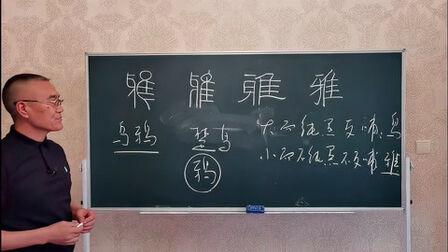 雅 雅 雅 雅
乌鸦 楚乌 大而纯黑反哺,乌
鸦 小而不纯黑不反哺 雅